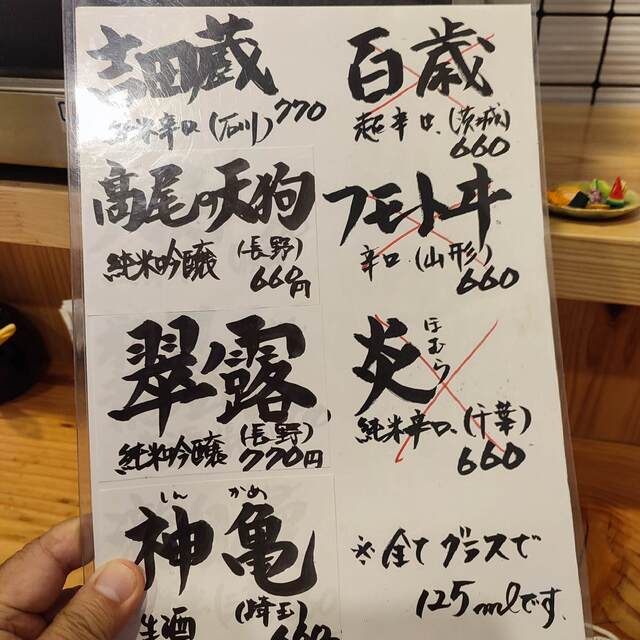 吉田蔵
純米辛口 (石川) 770
髙尾の天狗
純米吟醸 (長野) 660円
翠露
純米吟醸 (長野) 770円
しん かめ
神亀
生酒 (埼玉) 660
百歳
超辛口 (茨城) 660
フモトヰ
辛口 (山形) 660
ほむら
炎
純米辛口 (千葉) 660
※全てグラスで
125mlです。